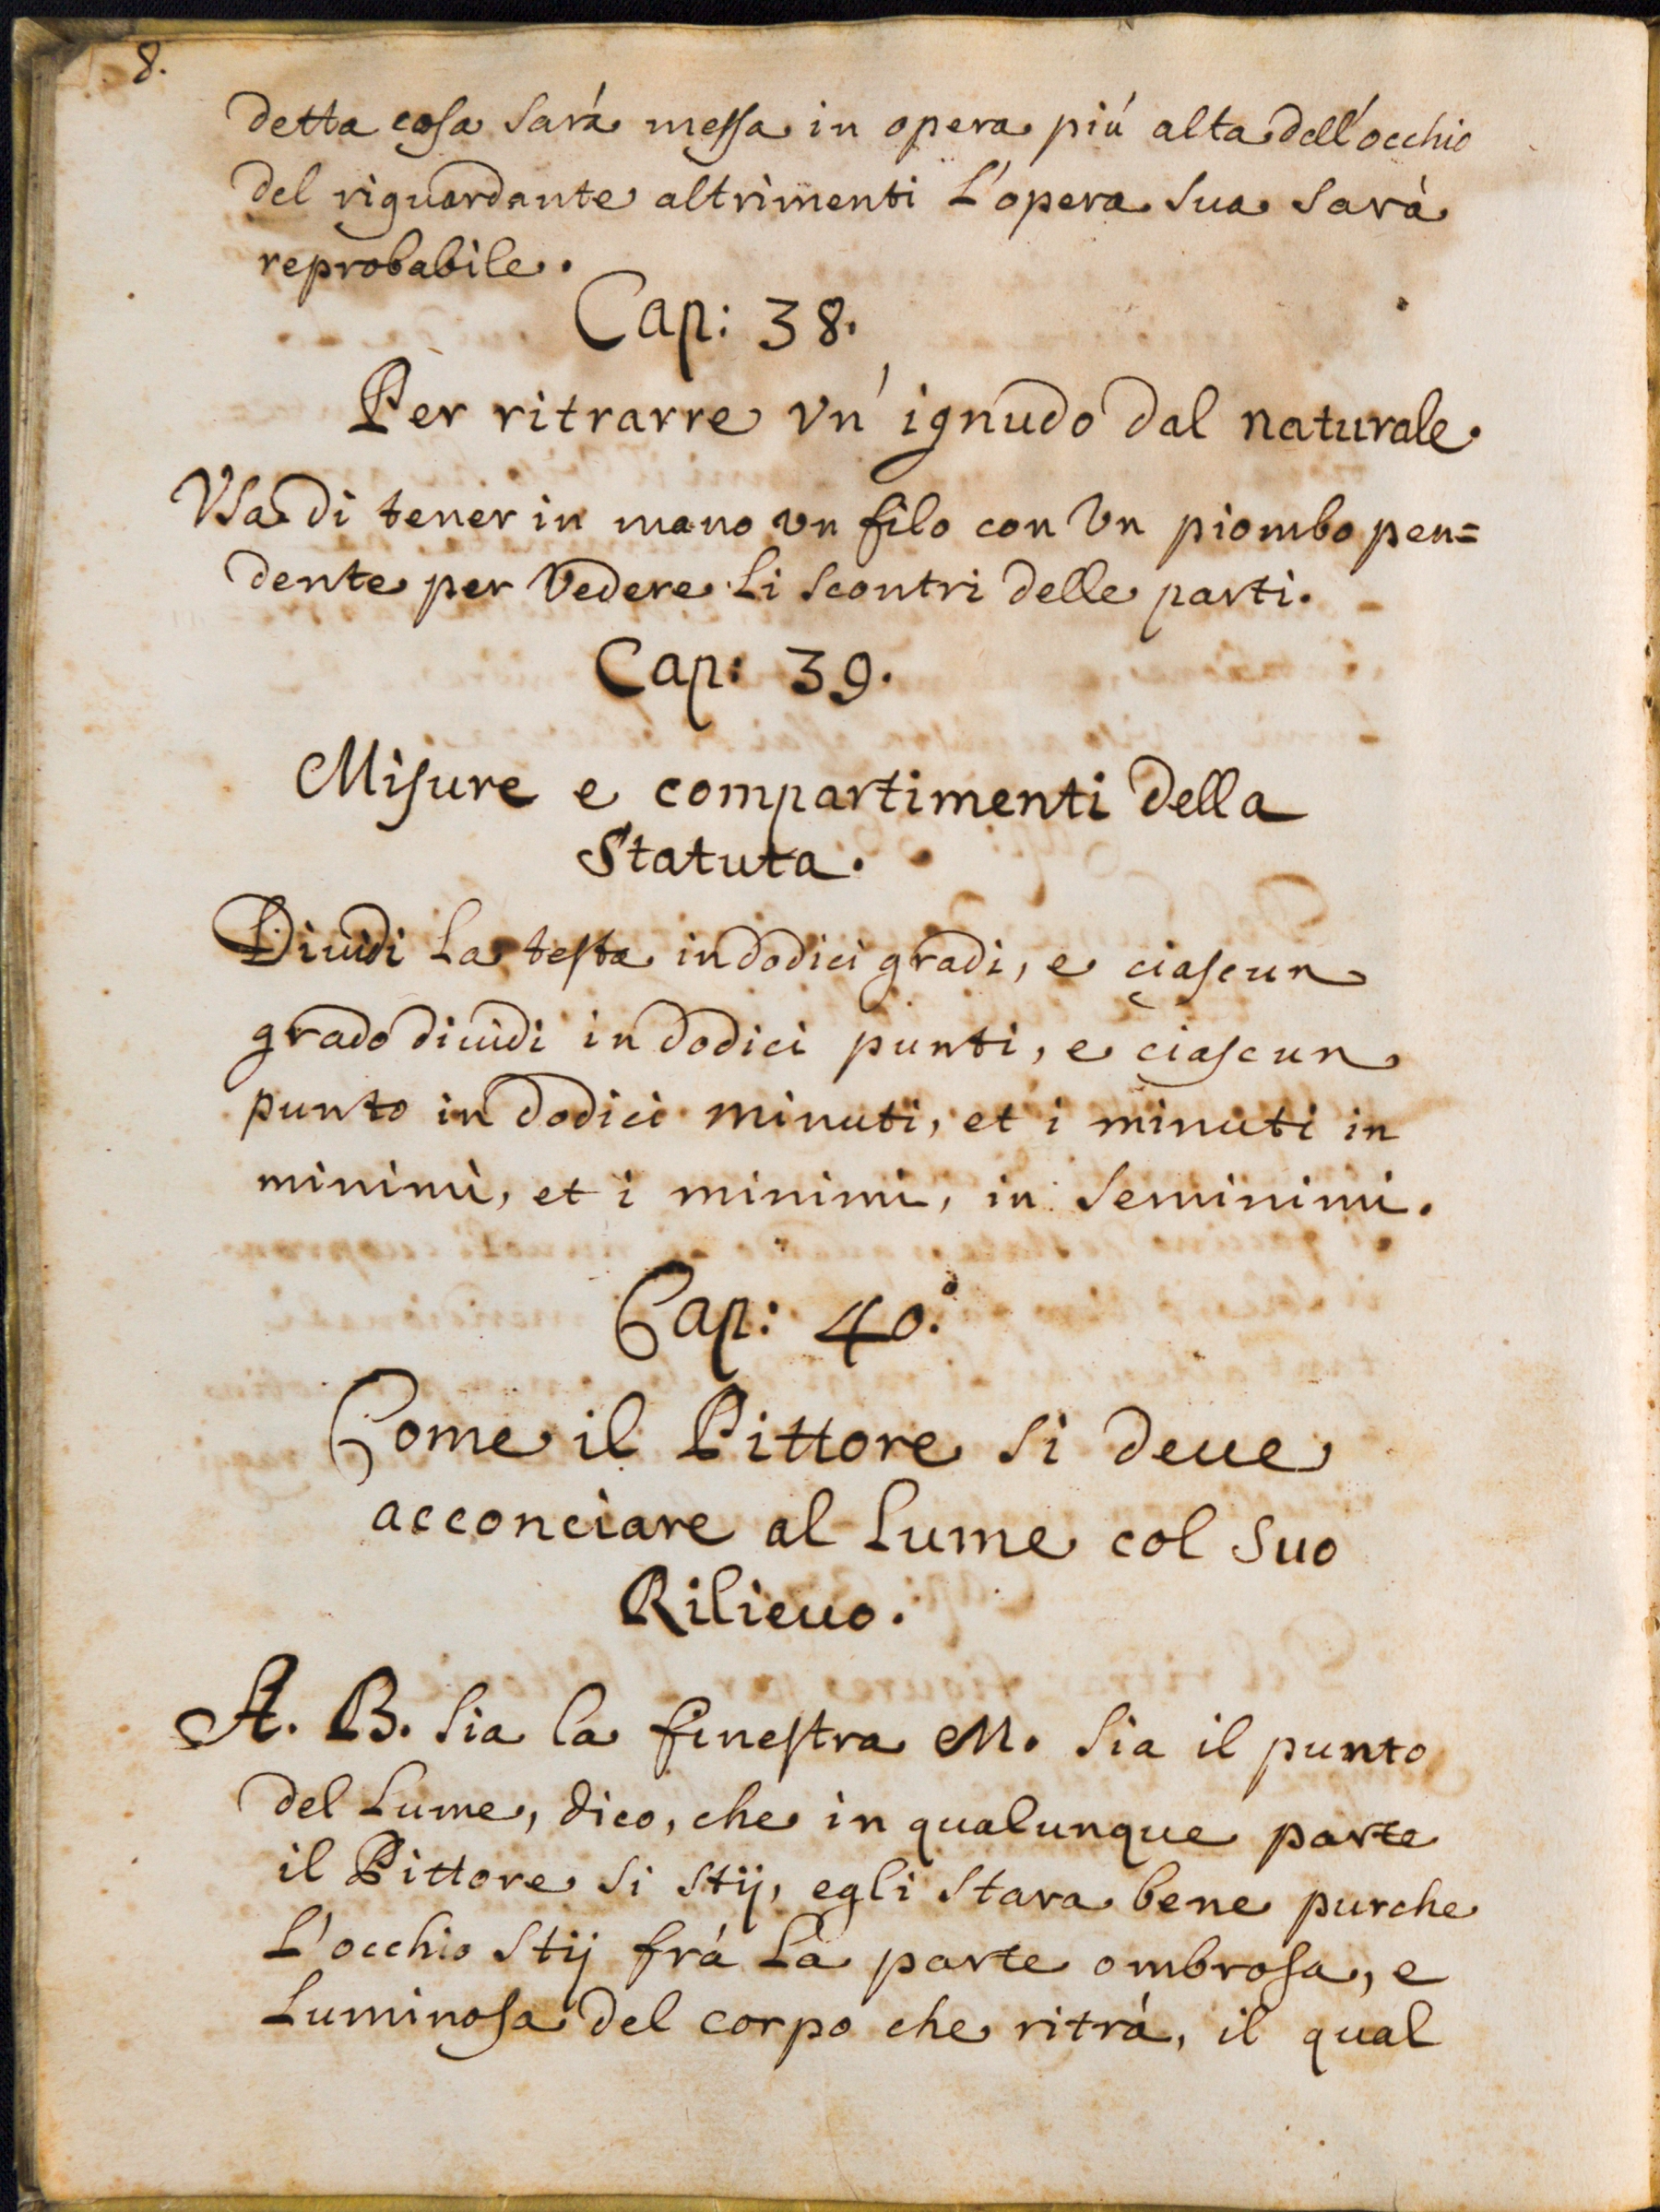 8.
detta cosa sará messa in opera piú alta dell'occhio
del riguardante altrimenti L'opera sua sarà
reprobabile.
Cap: 38.
Per ritrarre vn' ignudo dal naturale.
Vsa di tener in mano vn filo con vn piombo pen=
dente per vedere li scontri delle parti.
Cap: 39.
Misure e compartimenti della
Statuta.
Diuidi la testa in dodici gradi, e ciascun
grado diuidi in dodici punti, e ciascun
punto in dodici minuti, et i minuti in
minimi, et i minimi, in seminimi.
Cap: 40.°
Come il Pittore si deue
acconciare al Lume col suo
Rilieuo.
A. B. sia la finestra M. sia il punto
del Lume, dico, che in qualunque parte
il Pittore si stij, egli stara bene purche
L'occhio stij frá la parte ombrosa, e
Luminosa del corpo che ritrá, il qual